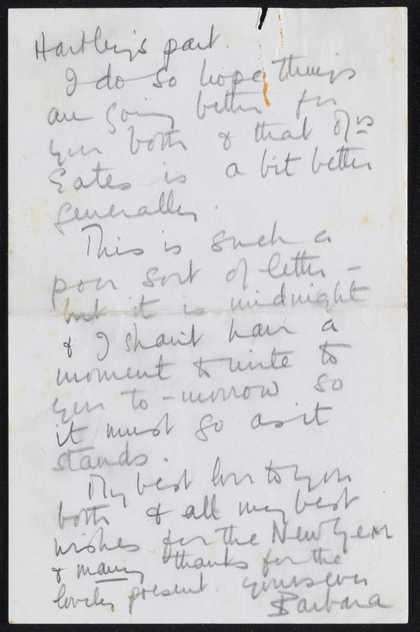 Hartley's part.
I do so hope things
are going better for
you both & that Mrs
Eates is a bit better
generally.
This is such a
poor sort of letter –
but it is midnight
& I shan't have a
moment to write to
you to-morrow so
it must go as it
stands.
My best love to you
both & all my best
wishes for the New Year
& many thanks for the
lovely present. Yours ever
Barbara